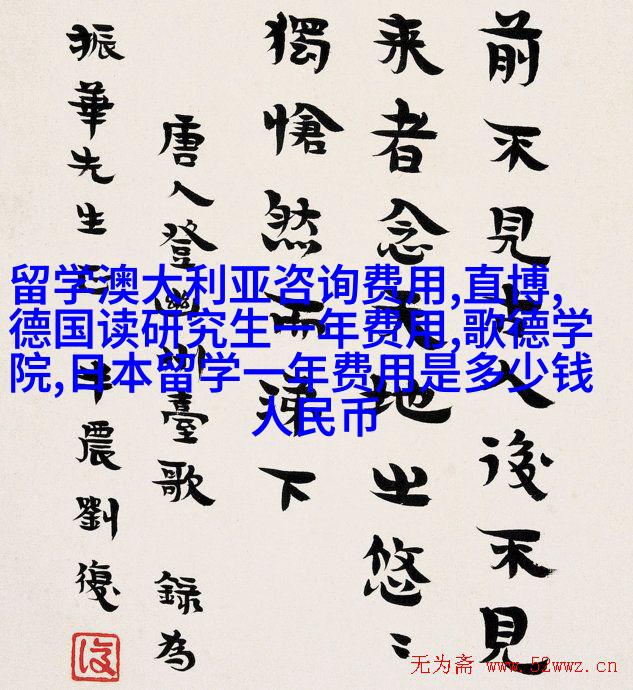 前不見古人後不見
来者念天地之悠〻
獨愴然而涕下
唐人登幽州臺歌 録為
振華先生 半農劉復
留学澳大利亚咨询费用,直博,
德国读研究生一年费用,歌德学
院,日本留学一年费用是多少钱
人民币
无为斋 www.52wwz.cn